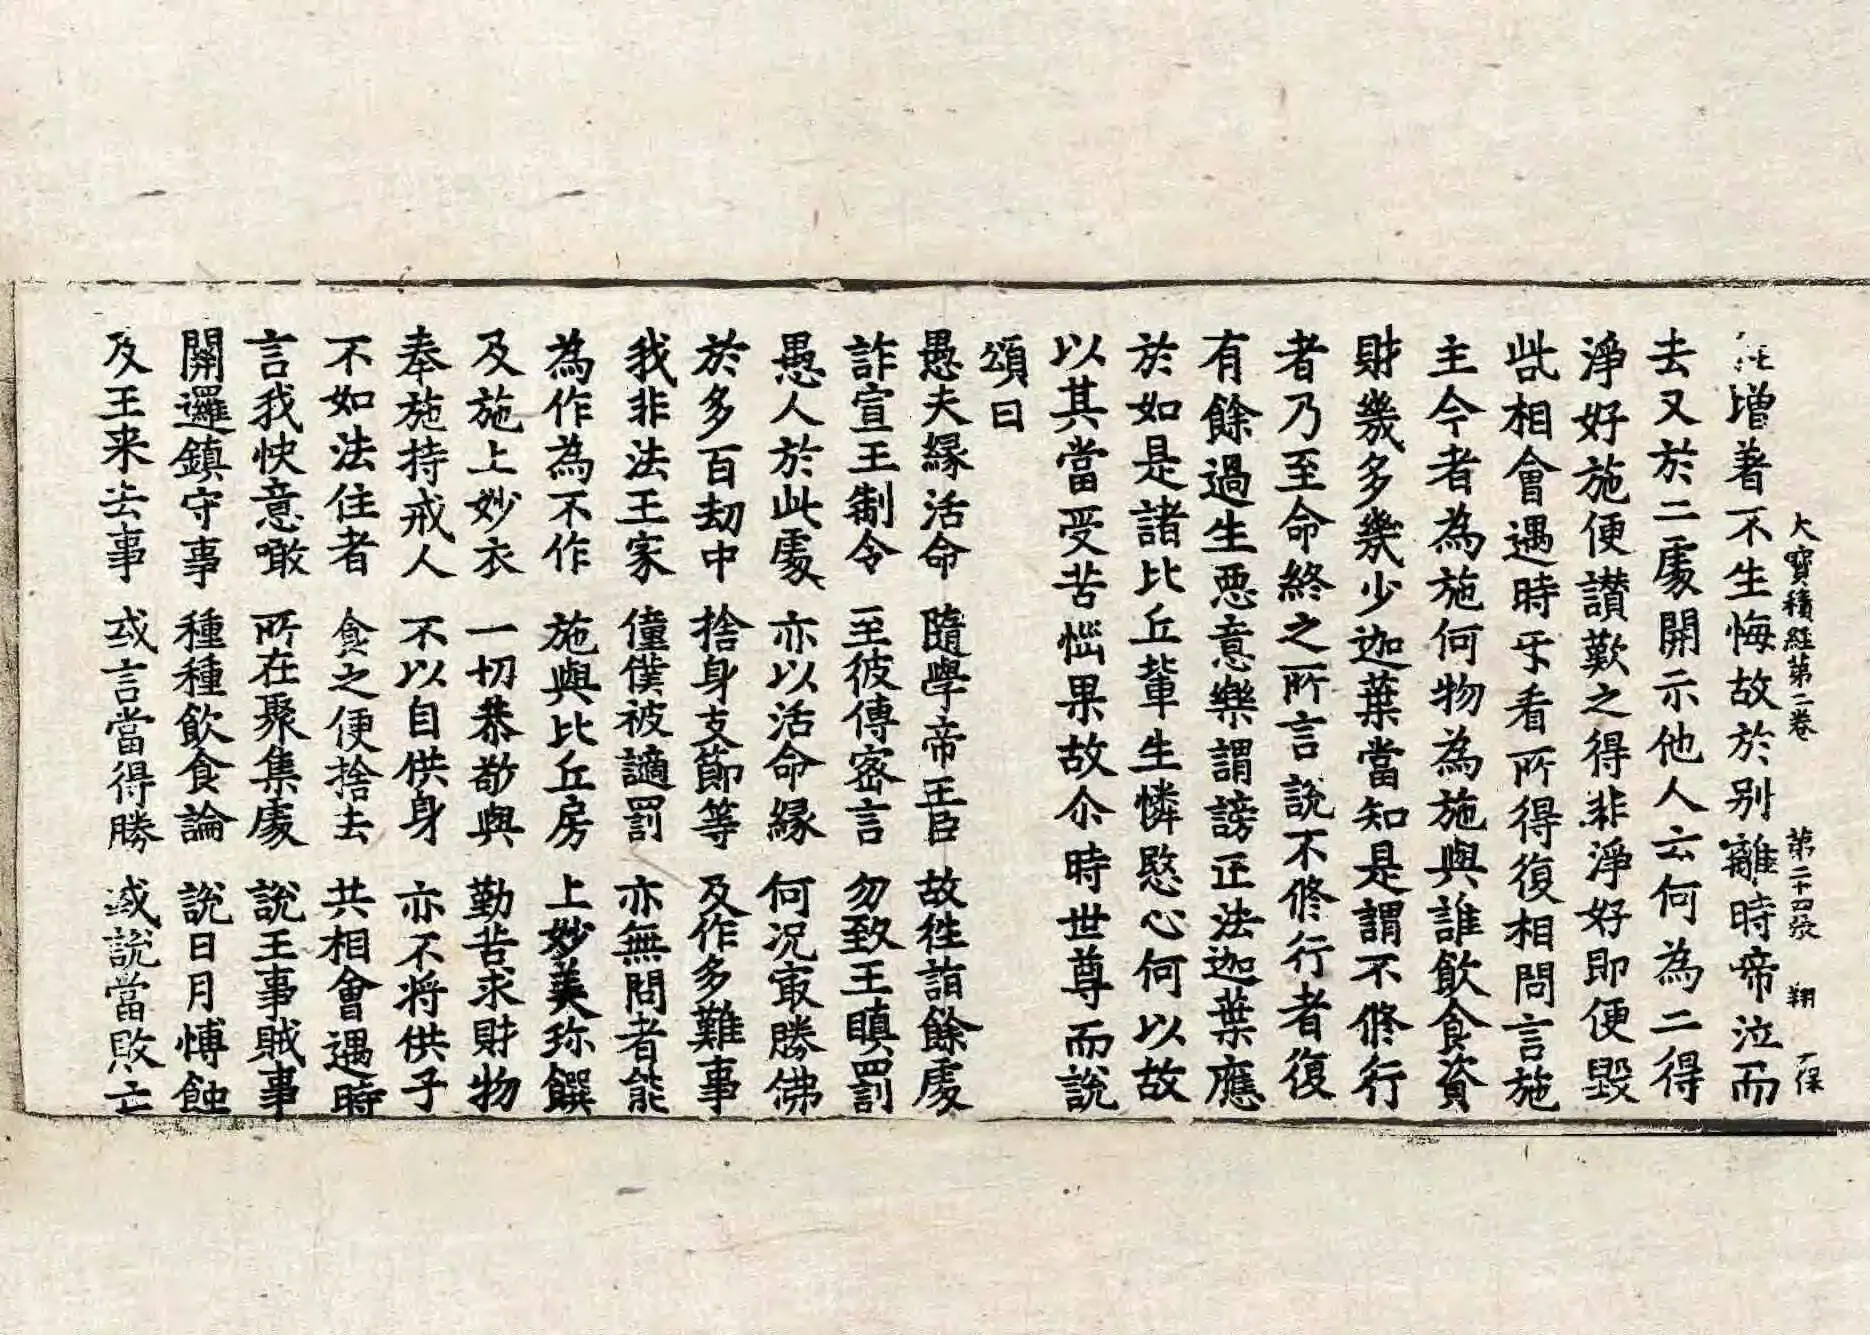 大寶積經第二卷 第二十四張 翔 一保
增著不生悔故於别離時啼泣而
去又於二處開示他人云何為二得
淨好施便讃歎之得非淨好即便毀
呰相會遇時㸦看所得復相問言施
主今者為施何物為施與誰飲食資
財幾多幾少迦葉當知是謂不修行
者乃至命終之所言說不修行者復
有餘過生惡意樂謂謗正法迦葉應
於如是諸比丘輩生憐愍心何以故
以其當受苦惱果故尒時世尊而說
頌曰
愚夫緣活命 隨學帝王臣 故往詣餘處
詐宣王制令 至彼傳密言 勿致王瞋罰
愚人於此處 亦以活命緣 何况㝡勝佛
於多百劫中 捨身支節等 及作多難事
我非法王家 僮僕被謫罰 亦無問者能
為作為不作 施與比丘房 上妙美珎饌
及施上妙衣 一切恭敬與 勤苦求財物
奉施持戒人 不以自供身 亦不将供子
不如法住者 食之便捨去 共相會遇時
言我快意噉 所在聚集處 說王事賊事
關邏鎮守事 種種飲食論 說日月愽蝕
及王来去事 或言當得勝 或說當敗亡